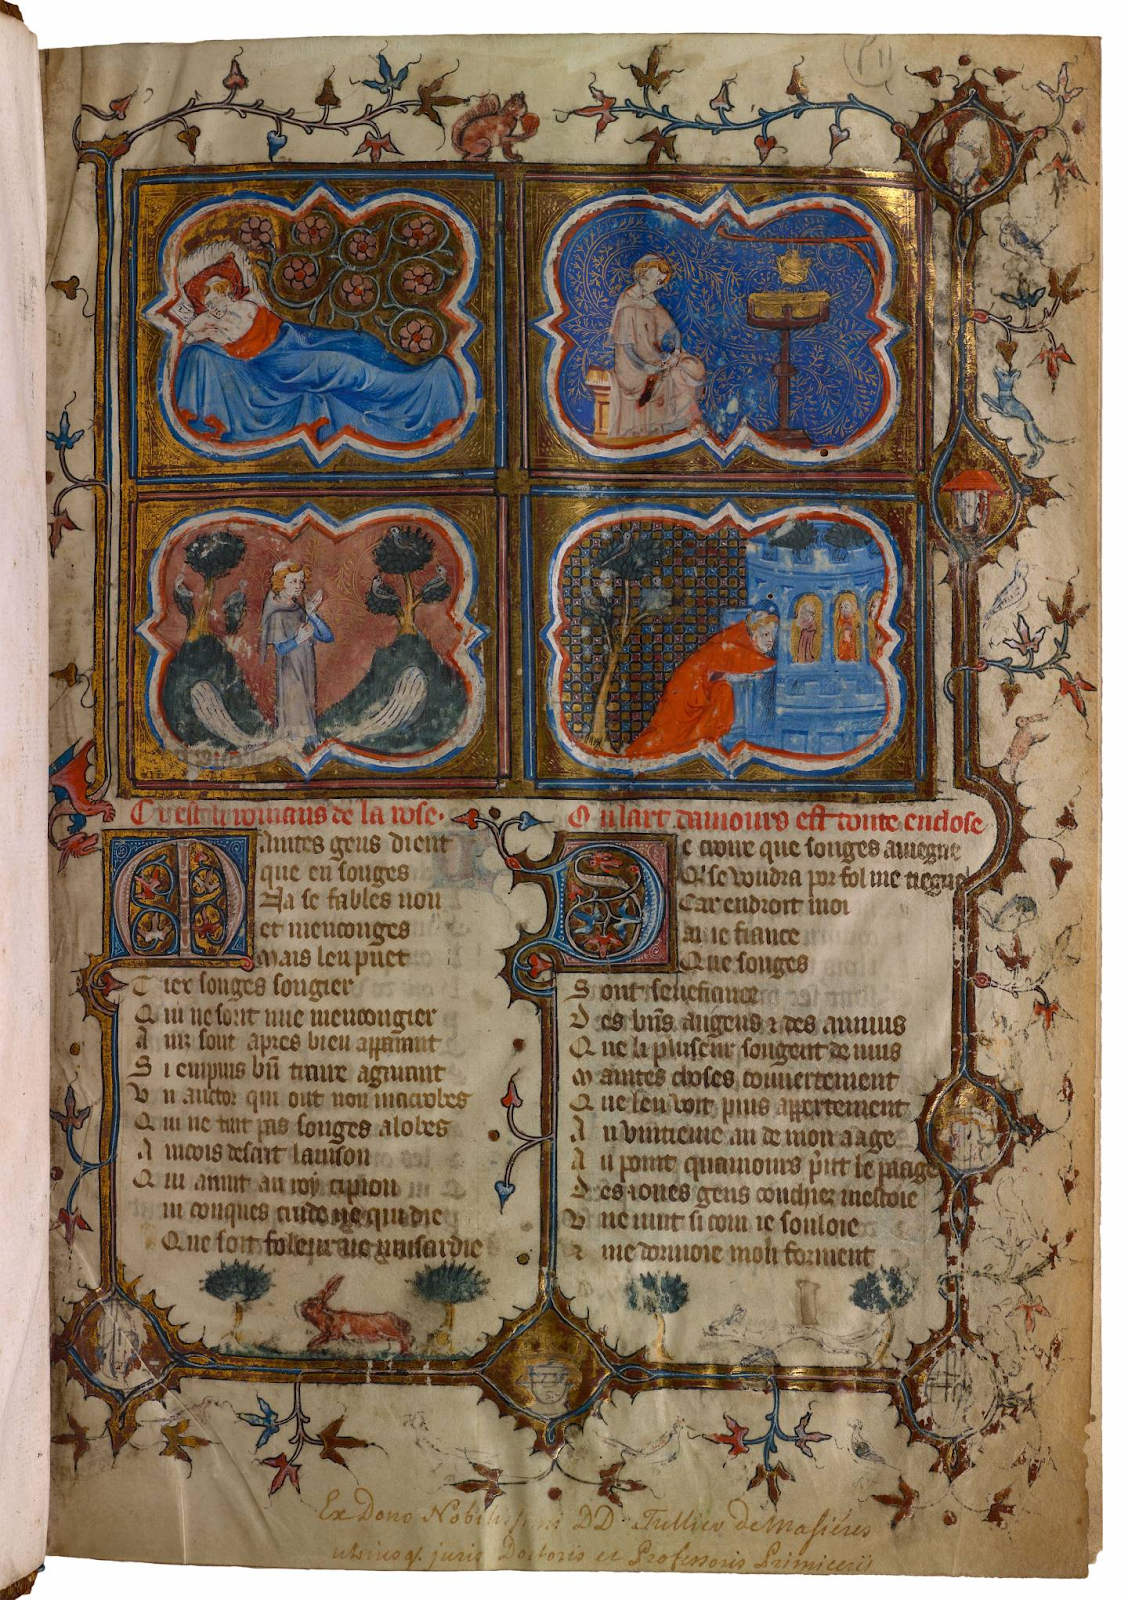 C i est li romans de la rose.
Maintes gens dient
que en songes
Na se fables non
et mencongez
Mais len puet
Tiex songes songier
Qui ne sont mie mencongier
Ainz sont apres bien apparant
Si en puis bien traire a garant
Un auctor qui ont non macrobes
Qui ne tint pas songes a lobes
Aincois descrit lavison
Qui avint au roy cipion
Qui conques cuide ne qui die
Que soit foleur ne musardie
O u lart damours est toute enclose
De croire que songes aviegne
Qi se voudra por fol me tiegne
Car endroit moi
ai ie fiance
Que songes
Sont senefiance
Des biens as gens et des anuius
Que li pluseur songent de nuis
Maintes choses couvertement
Que len voit puis appertement
Au vintieme an de mon aage
Au point quamours prent le paage
Des iones gens couchiez mestoie
Une nuit si com ie souloie
Et me dormoie moli forment
Ex Dono Nobilissimi DD Tullier de Masiéres
utriusq. juris Doctoris et Professoris Primicerii